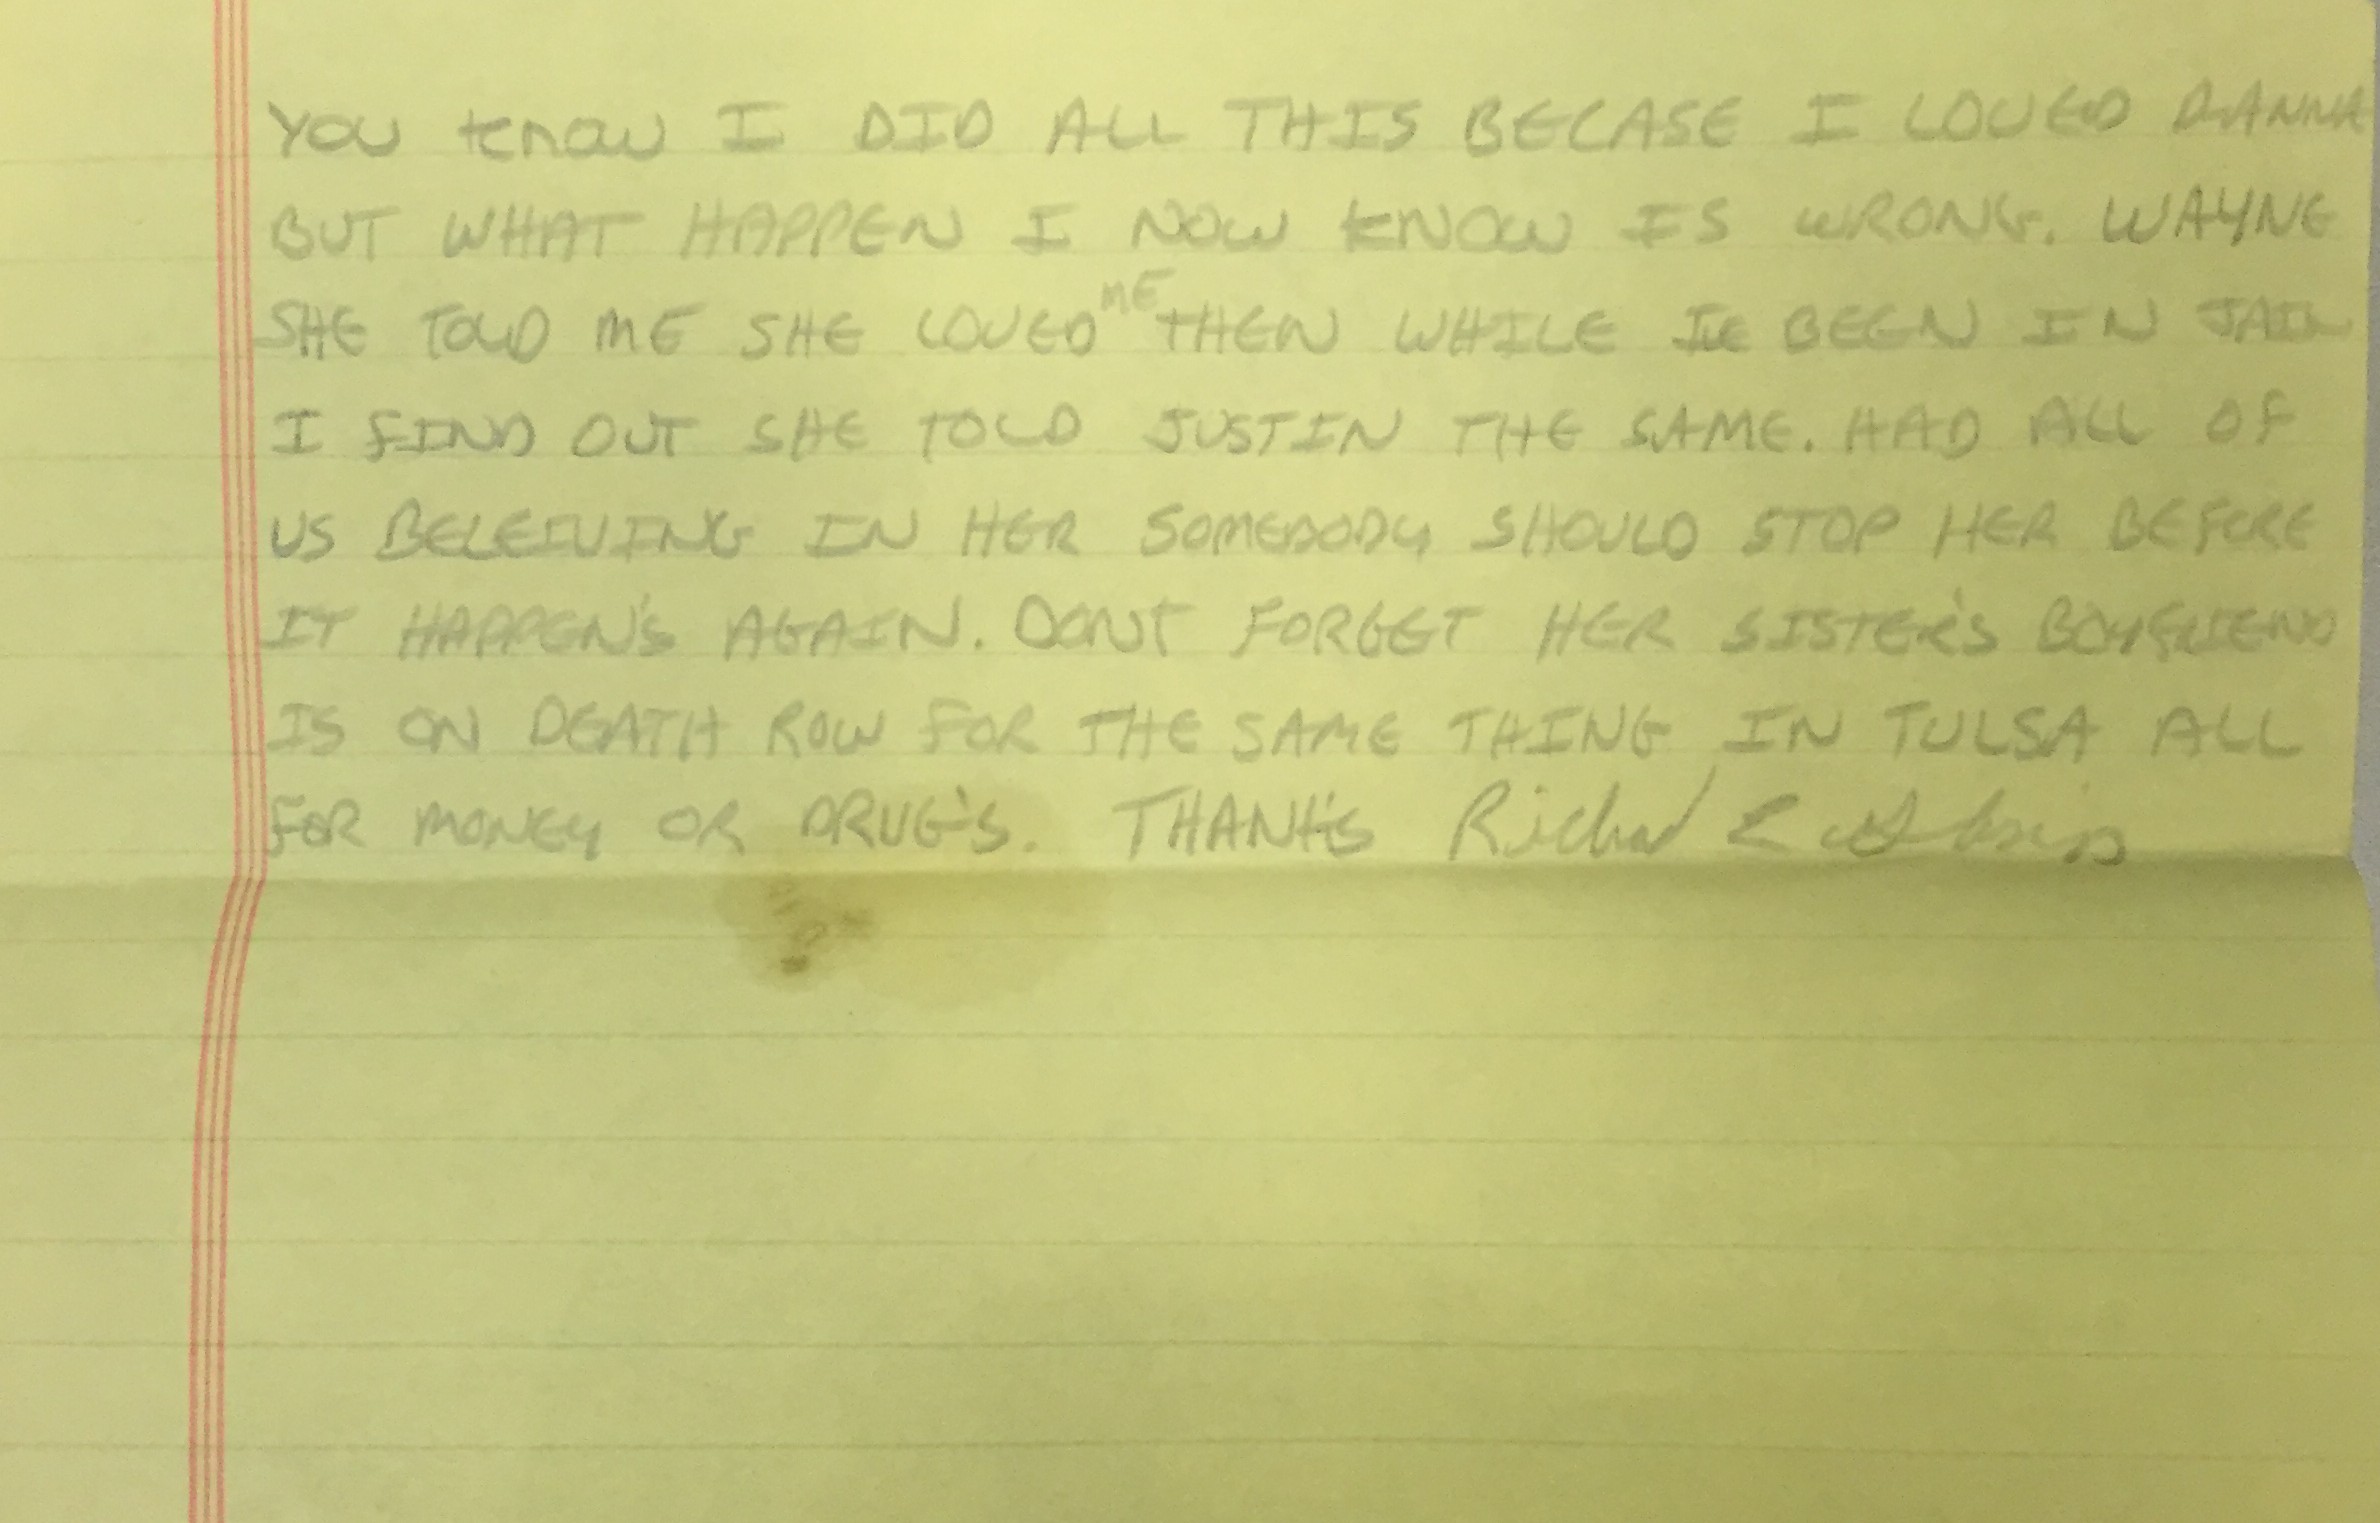 YOU KNOW I DID ALL THIS BECASE I LOVED DANNA
BUT WHAT HAPPEN I NOW KNOW IS WRONG. WAYNE
SHE TOLD ME SHE LOVED ME THEN WHILE I'VE BEEN IN JAIL
I FIND OUT SHE TOLD JUSTIN THE SAME. HAD ALL OF
US BELEIVING IN HER SOMEBODY SHOULD STOP HER BEFORE
IT HAPPEN'S AGAIN. DONT FORGET HER SISTER'S BOYFRIEND
IS ON DEATH ROW FOR THE SAME THING IN TULSA ALL
FOR MONEY OR DRUG'S. THANK'S Richard